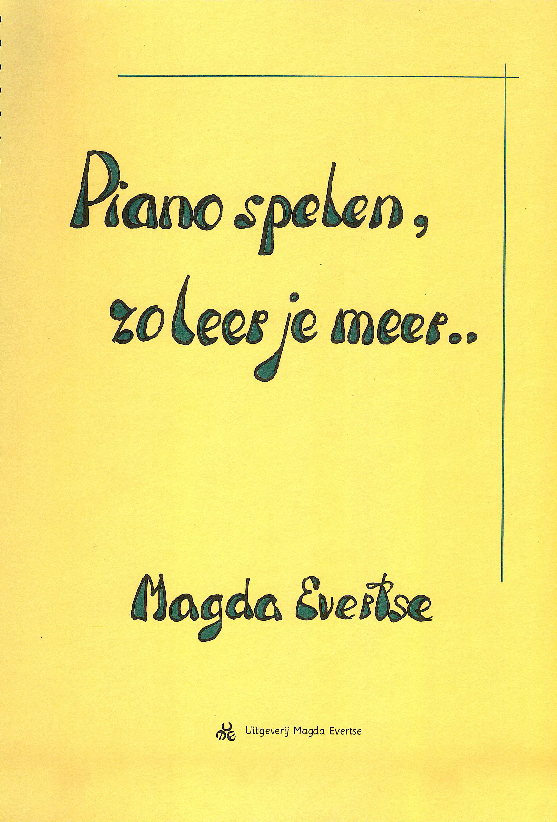 Piano spelen,
zo leer je meer..
Magda Evertse
Uitgeverij Magda Evertse